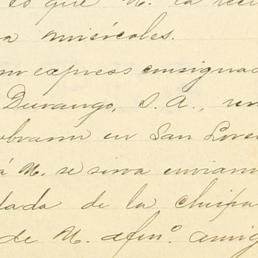 lo que N. la reci
a miércoles.
or express consignad
Durango, S. A., un
obrarm en San Lore
á N. se sirva enviarm
lada de la chispa
de N. afmo. amig